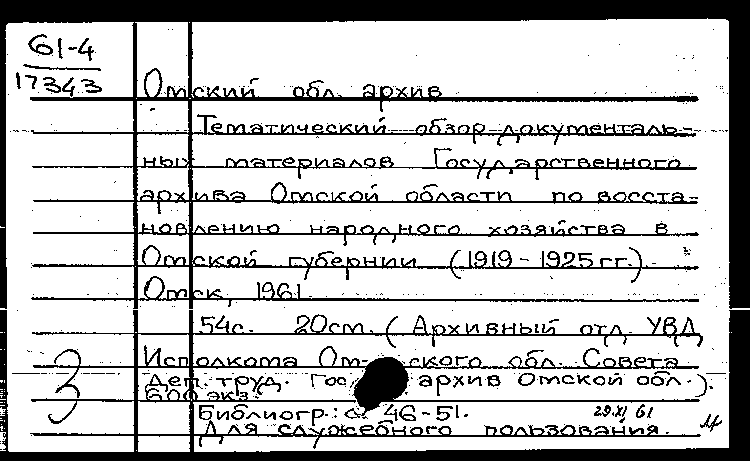 61-4
17343
Омский обл. архив
Тематический обзор документаль-
ных материалов Государственного
архива Омской области по восста-
новлению народного хозяйства в
Омской губернии (1919-1925гг.)
Омск, 1961
54с. 20см. (Архивный отд. УВД
Исполкома Ом- ского обл. Совета
деп. труд. Гос архив Омской обл.).
600 экз.
З
Библиогр.: с. 46-51.
29.XI 61
Для служебного пользования.